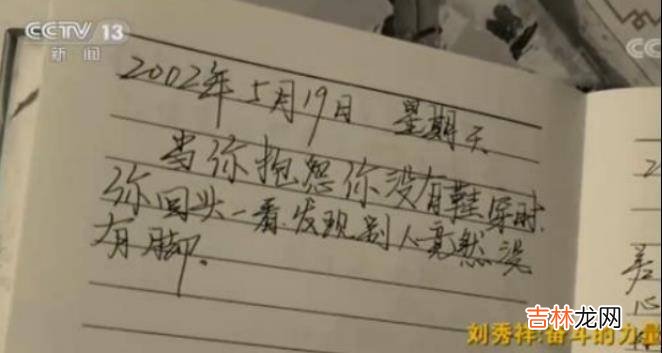 CCTV 13
新闻
CC
2002年5月19日 星期天
当你抱怨你没有鞋穿时,
你回头一看,发现别人竟然没
有脚。
刘秀祥:奋斗的力量
吉林龙网